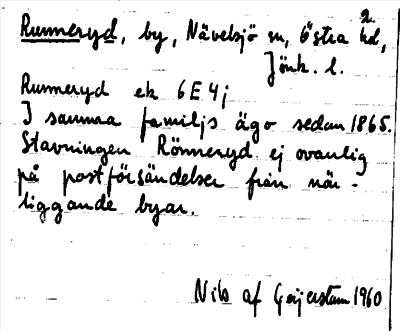 Runneryd, by, Nävelsjö sn, Östra hd,
2
Jönk. l.
Runneryd ek 6E4j
I samma familjs ägo sedan 1865.
Stavningen Rönneryd ej ovanlig
på postförsändelser från när-
liggande byar.
Nils af Geijerstam 1960